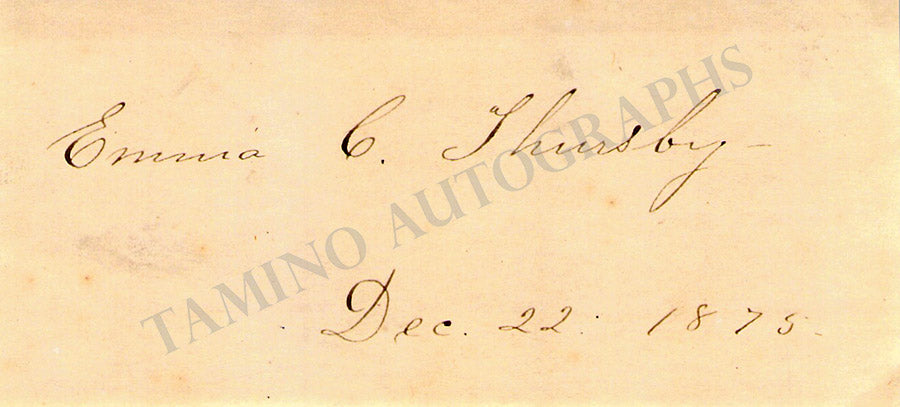 Emma C. Thursby-
TAMINO AUTOGRAPHS
Dec. 22. 1875-